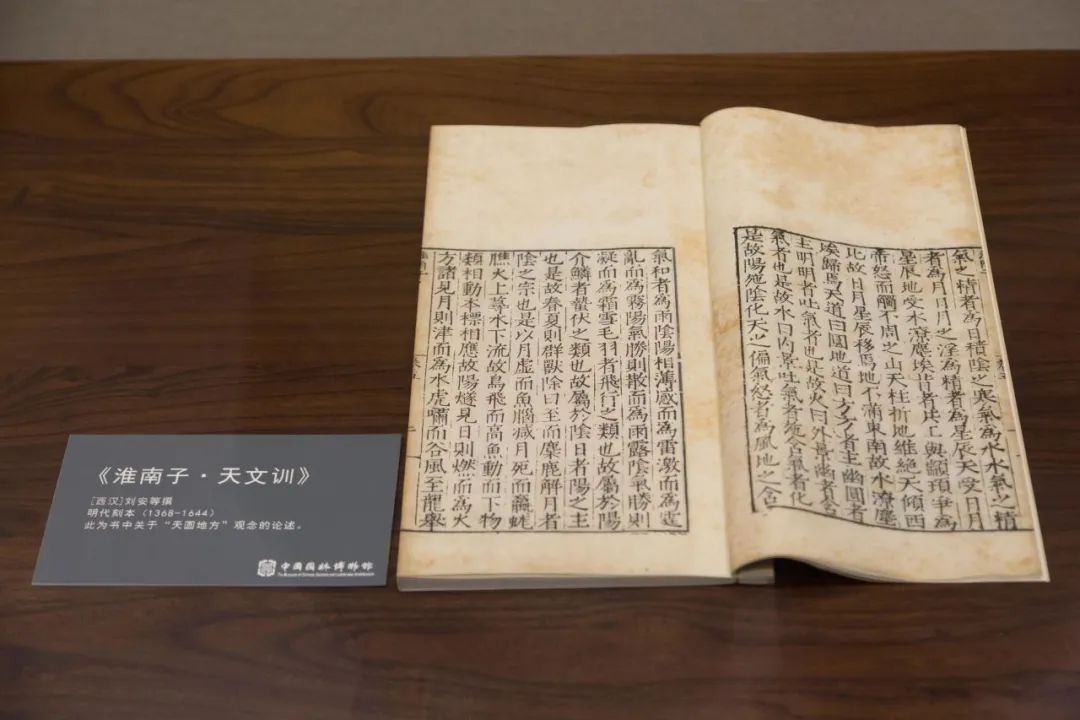 《淮南子·天文训》
[西汉]刘安等撰
明代刻本（1368-1644）
此为书中关于“天圆地方”观念的论述。
中国园林博物馆
The Museum of Chinese Gardens and Landscape Architecture
氣之精者為日積陰之寒氣為水水氣之精
者為月日月之淫為精者為星辰天受日月
星辰地受水潦塵埃昔者共工與顓頊爭為
帝怒而觸不周之山天柱折地維絕天傾西
北故日月星辰移焉地不滿東南故水潦塵
埃歸焉天道曰圓地道曰方方者主幽圓者
主明明者吐氣者也是故火曰外景幽者含
氣者也是故水曰內景吐氣者施含氣者化
是故陽施陰化天之偏氣怒者為風地之含
氣和者為雨陰陽相薄感而為雷激而為霆
亂而為霧陽氣勝則散而為雨露陰氣勝則
凝而為霜雪毛羽者飛行之類也故屬於陽
介鱗者蟄伏之類也故屬於陰日者陽之主
也是故春夏則群獸除日至而麋鹿解月者
陰之宗也是以月虛而魚腦減月死而蠃蛖
膲火上蕁水下流故鳥飛而高魚動而下物
類相動本標相應故陽燧見日則燃而為火
方諸見月則津而為水虎嘯而谷風至龍舉